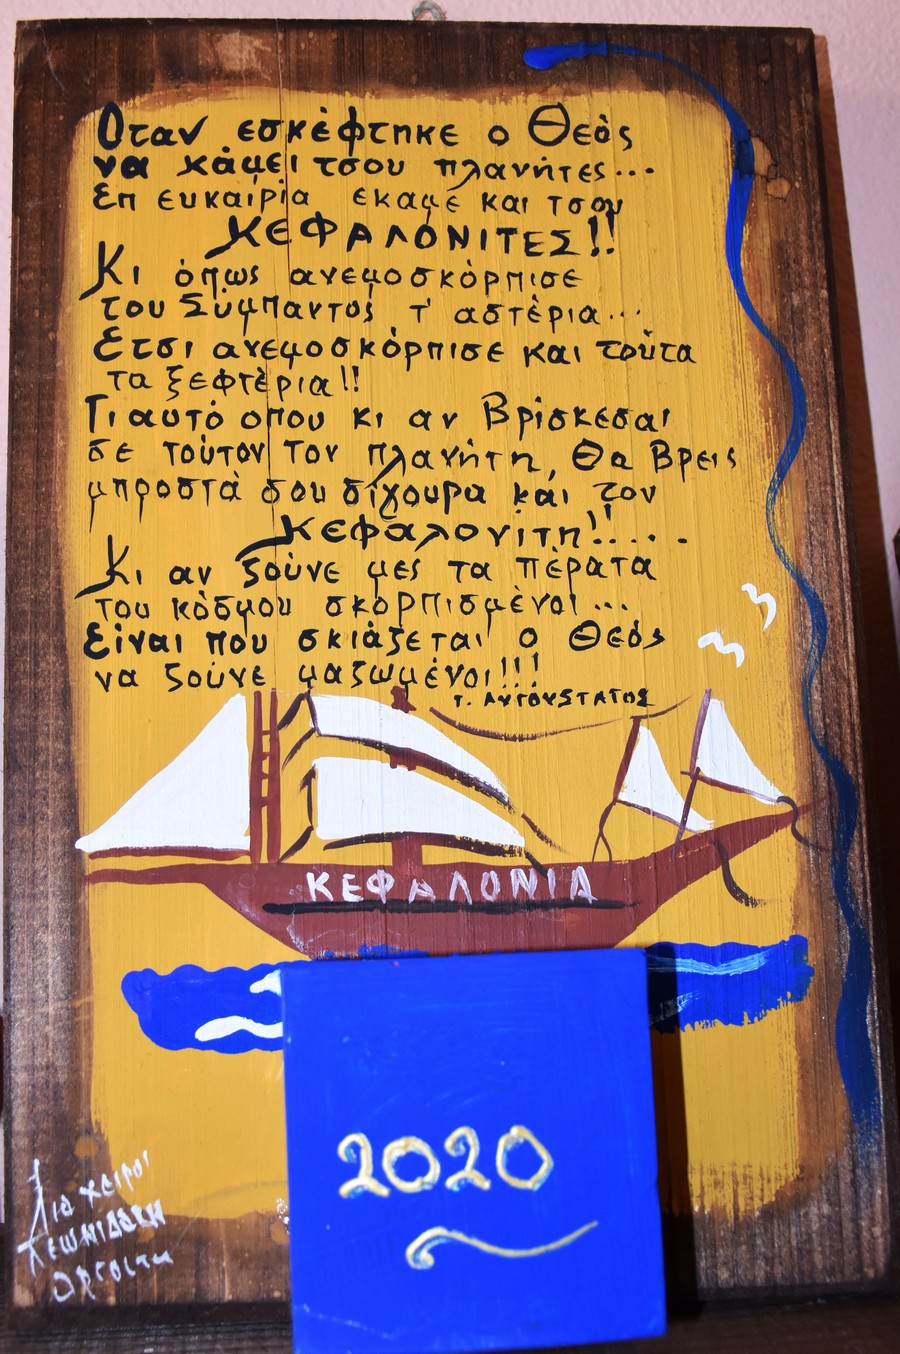 Οταν εσκέφτηκε ο Θεός
να χάμει τσου πλανήτες...
Επ ευκαιρία εκαμε και τσου
ΚΕΦΑΛΟΝΙΤΕΣ!!
Κι όπως ανεμοσκόρπισε
του Σύμπαντος τ' αστέρια...
Ετσι ανεμοσκόρπισε και τούτα
τα ξεφτέρια!!
Γιαυτό οπου κι αν βρίσκεσαι
σε τούτον τον πλανήτη, Θα βρεις
μπροστά σου σίγουρα και τον
Κεφαλονίτη!!....
Κι αν ζούνε μες τα πέρατα
του κόσμου σκορπισμένοι...
Είναι που σκιάζεται ο Θεός
να ζούνε μαζωμένοι!!!
Γ. ΑΥΓΟΥΣΤΑΤΟΣ
ΚΕΦΑΛΟΝΙΑ
2020
Δια χειρος